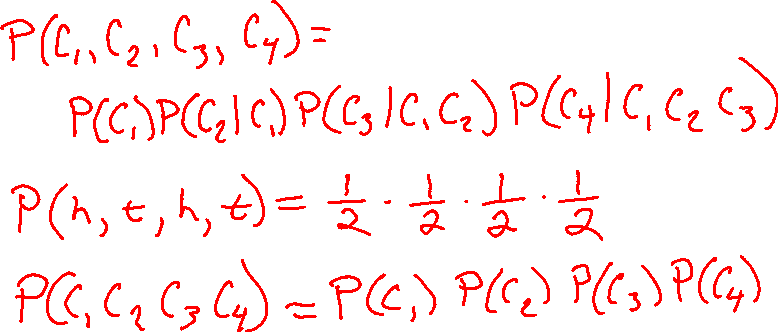 P(C₁, C₂, C₃, C₄) =
P(C₁)P(C₂|C₁)P(C₃|C₁C₂)P(C₄|C₁C₂C₃)
P(h, t, h, t) = 1/2 · 1/2 · 1/2 · 1/2
P(C₁C₂C₃C₄) = P(C₁) P(C₂) P(C₃) P(C₄)